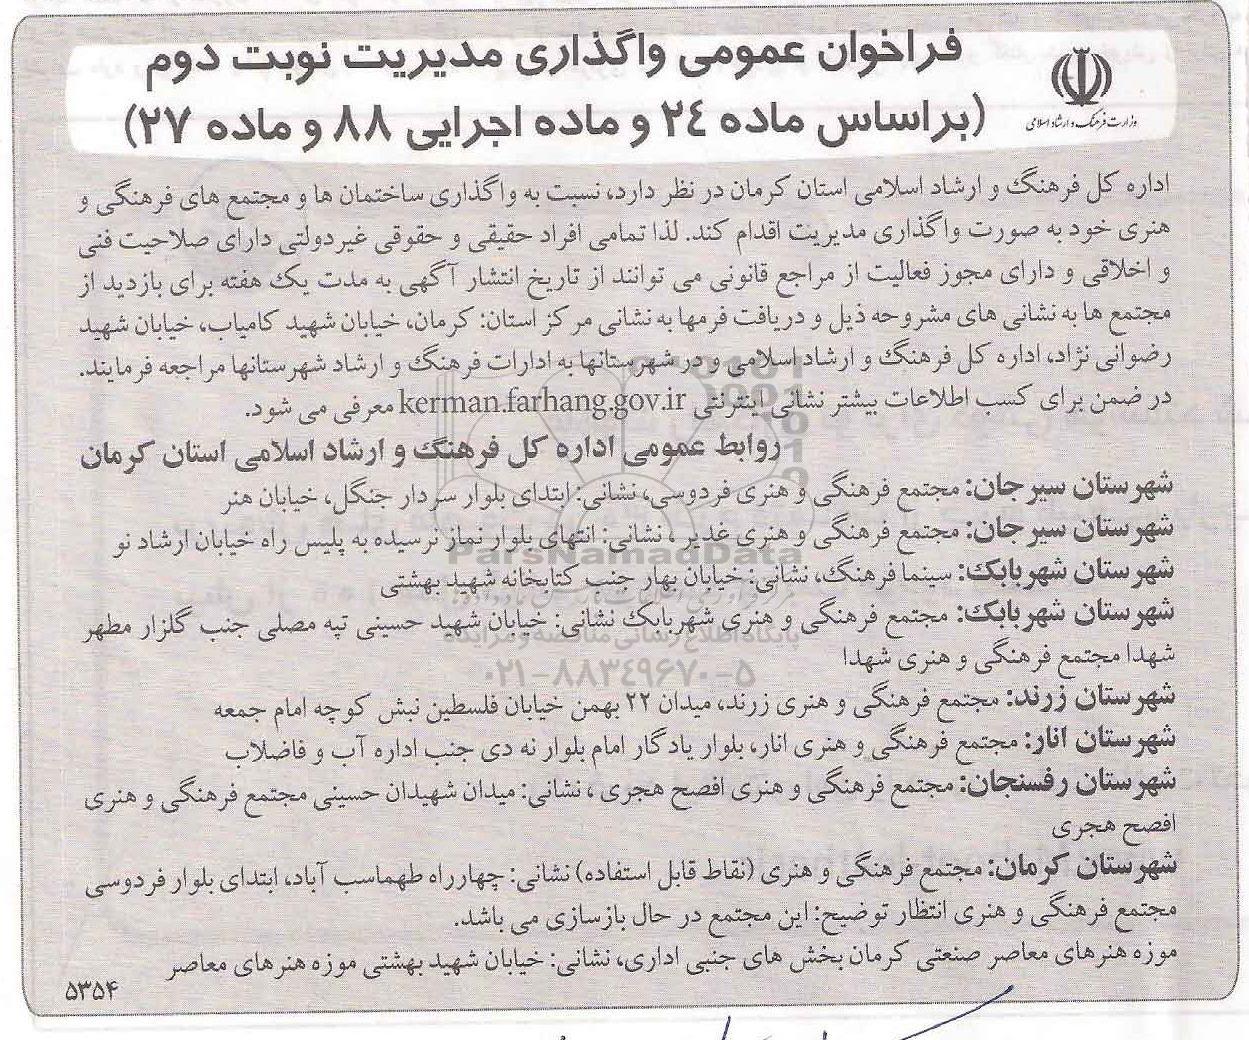 فراخوان عمومی واگذاری مدیریت نوبت دوم
(براساس ماده ۲۴ و ماده اجرایی ۸۸ و ماده ۲۷)
وزارت فرهنگ و ارشاد اسلامی
اداره کل فرهنگ و ارشاد اسلامی استان کرمان در نظر دارد، نسبت به واگذاری ساختمان ها و مجتمع های فرهنگی و
هنری خود به صورت واگذاری مدیریت اقدام کند. لذا تمامی افراد حقیقی و حقوقی غیردولتی دارای صلاحیت فنی
و اخلاقی و دارای مجوز فعالیت از مراجع قانونی می توانند از تاریخ انتشار آگهی به مدت یک هفته برای بازدید از
مجتمع ها به نشانی های مشروحه ذیل و دریافت فرمها به نشانی مرکز استان: کرمان، خیابان شهید کامیاب، خیابان شهید
رضوانی نژاد، اداره کل فرهنگ و ارشاد اسلامی و در شهرستانها به ادارات فرهنگ و ارشاد شهرستانها مراجعه فرمایند.
در ضمن برای کسب اطلاعات بیشتر نشانی اینترنتی kerman.farhang.gov.ir معرفی می شود.
روابط عمومی اداره کل فرهنگ و ارشاد اسلامی استان کرمان
شهرستان سیرجان: مجتمع فرهنگی و هنری فردوسی، نشانی: ابتدای بلوار سردار جنگل، خیابان هنر
شهرستان سیرجان: مجتمع فرهنگی و هنری غدیر، نشانی: انتهای بلوار نماز نرسیده به پلیس راه خیابان ارشاد نو
شهرستان شهربابک: سینما فرهنگ، نشانی: خیابان بهار جنب کتابخانه شهید بهشتی
شهرستان شهربابک: مجتمع فرهنگی و هنری شهربابک نشانی: خیابان شهید حسینی تپه مصلی جنب گلزار مطهر
شهدا مجتمع فرهنگی و هنری شهدا
شهرستان زرند: مجتمع فرهنگی و هنری زرند، میدان ۲۲ بهمن خیابان فلسطین نبش کوچه امام جمعه
شهرستان انار: مجتمع فرهنگی و هنری انار، بلوار یادگار امام بلوار نه دی جنب اداره آب و فاضلاب
شهرستان رفسنجان: مجتمع فرهنگی و هنری افصح هجری، نشانی: میدان شهیدان حسینی مجتمع فرهنگی و هنری
افصح هجری
شهرستان کرمان: مجتمع فرهنگی و هنری (نقاط قابل استفاده) نشانی: چهارراه طهماسب آباد، ابتدای بلوار فردوسی
مجتمع فرهنگی و هنری انتظار توضیح: این مجتمع در حال بازسازی می باشد.
موزه هنرهای معاصر صنعتی کرمان بخش های جنبی اداری، نشانی: خیابان شهید بهشتی موزه هنرهای معاصر
۵۳۵۴
ParsNamadData
پایگاه اطلاع رسانی مناقصه و مزایده
۰۲۱-۸۸۳۴۹۶۷۰-۵